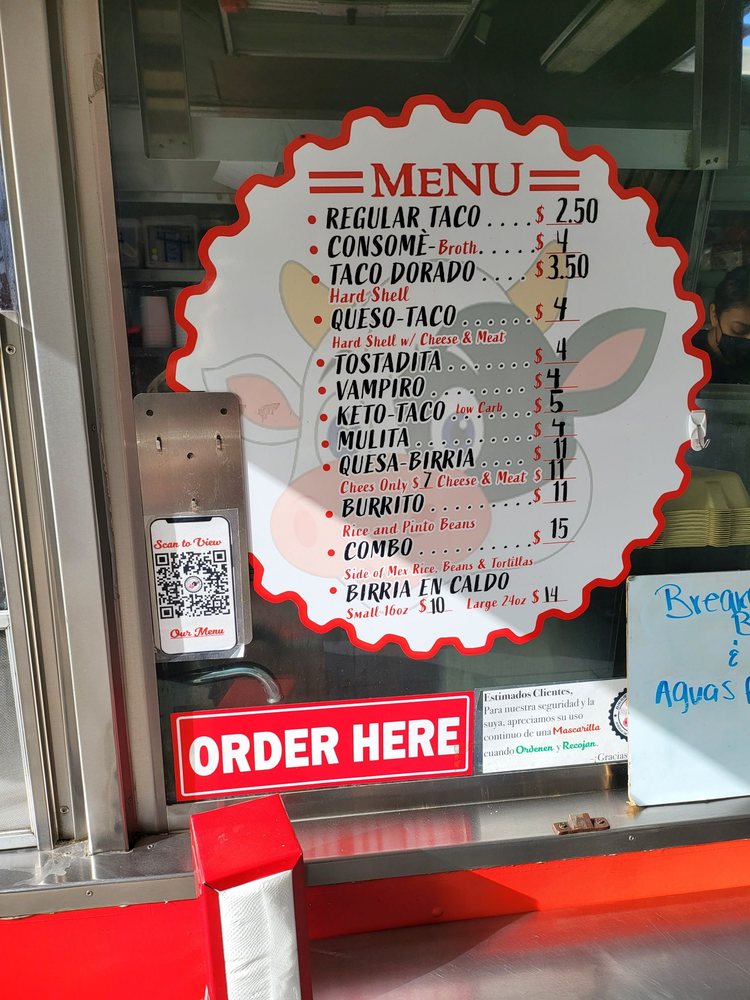 MENU
REGULAR TACO . . . . $ 2.50
CONSOMÈ-Broth. . . . . $ 4
TACO DORADO . . . . $ 3.50
Hard Shell
QUESO-TACO . . . . . . . . $ 4
Hard Shell w/ Cheese & Meat
TOSTADITA . . . . . . . . . $ 4
VAMPIRO . . . . . . . . . . . $ 4
KETO-TACO low Carb . . . . $ 5
MULITA . . . . . . . . . . . . $ 4
QUESA-BIRRIA . . . . . $ 11
Chees Only $ 7 Cheese & Meat $ 11
BURRITO . . . . . . . . . . . $ 11
Rice and Pinto Beans
COMBO . . . . . . . . . . . . $ 15
Side of Mex Rice, Beans & Tortillas
BIRRIA EN CALDO
Small 16oz $ 10 Large 24oz $ 14
Scan to View
Our Menu
ORDER HERE
Estimados Clientes,
Para nuestra seguridad y la
suya, apreciamos su uso
continuo de una Mascarilla
cuando Ordenen y Recojan.
-¡Gracias
&
Aguas